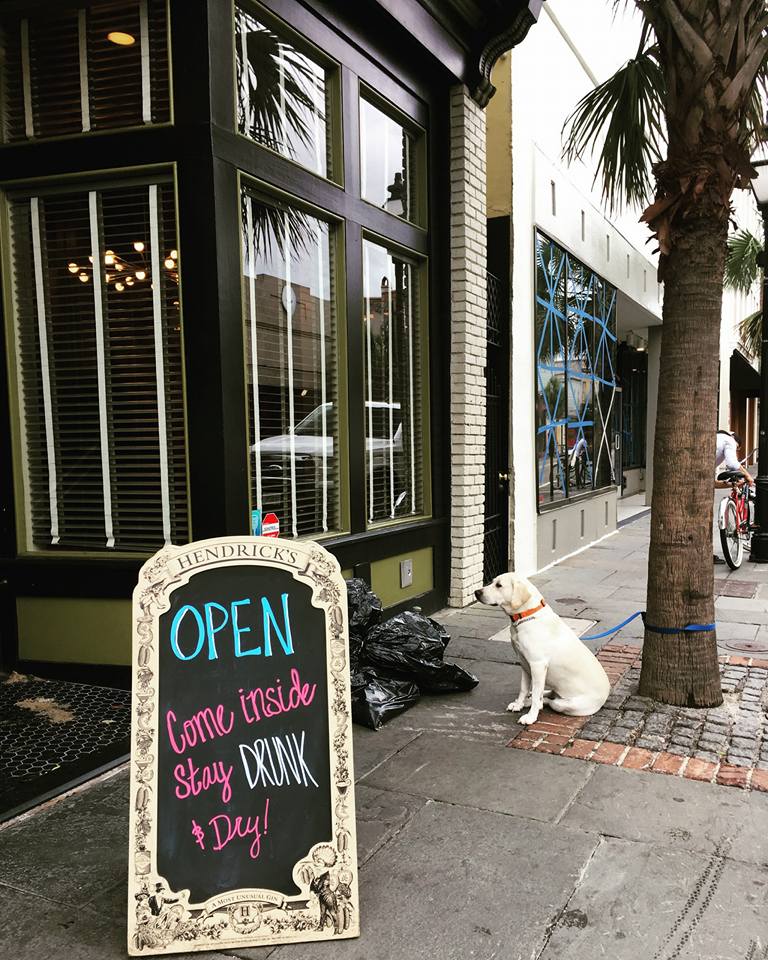 HENDRICK'S
OPEN
Come inside
Stay DRUNK
& Dry!
A MOST UNUSUAL GIN
H